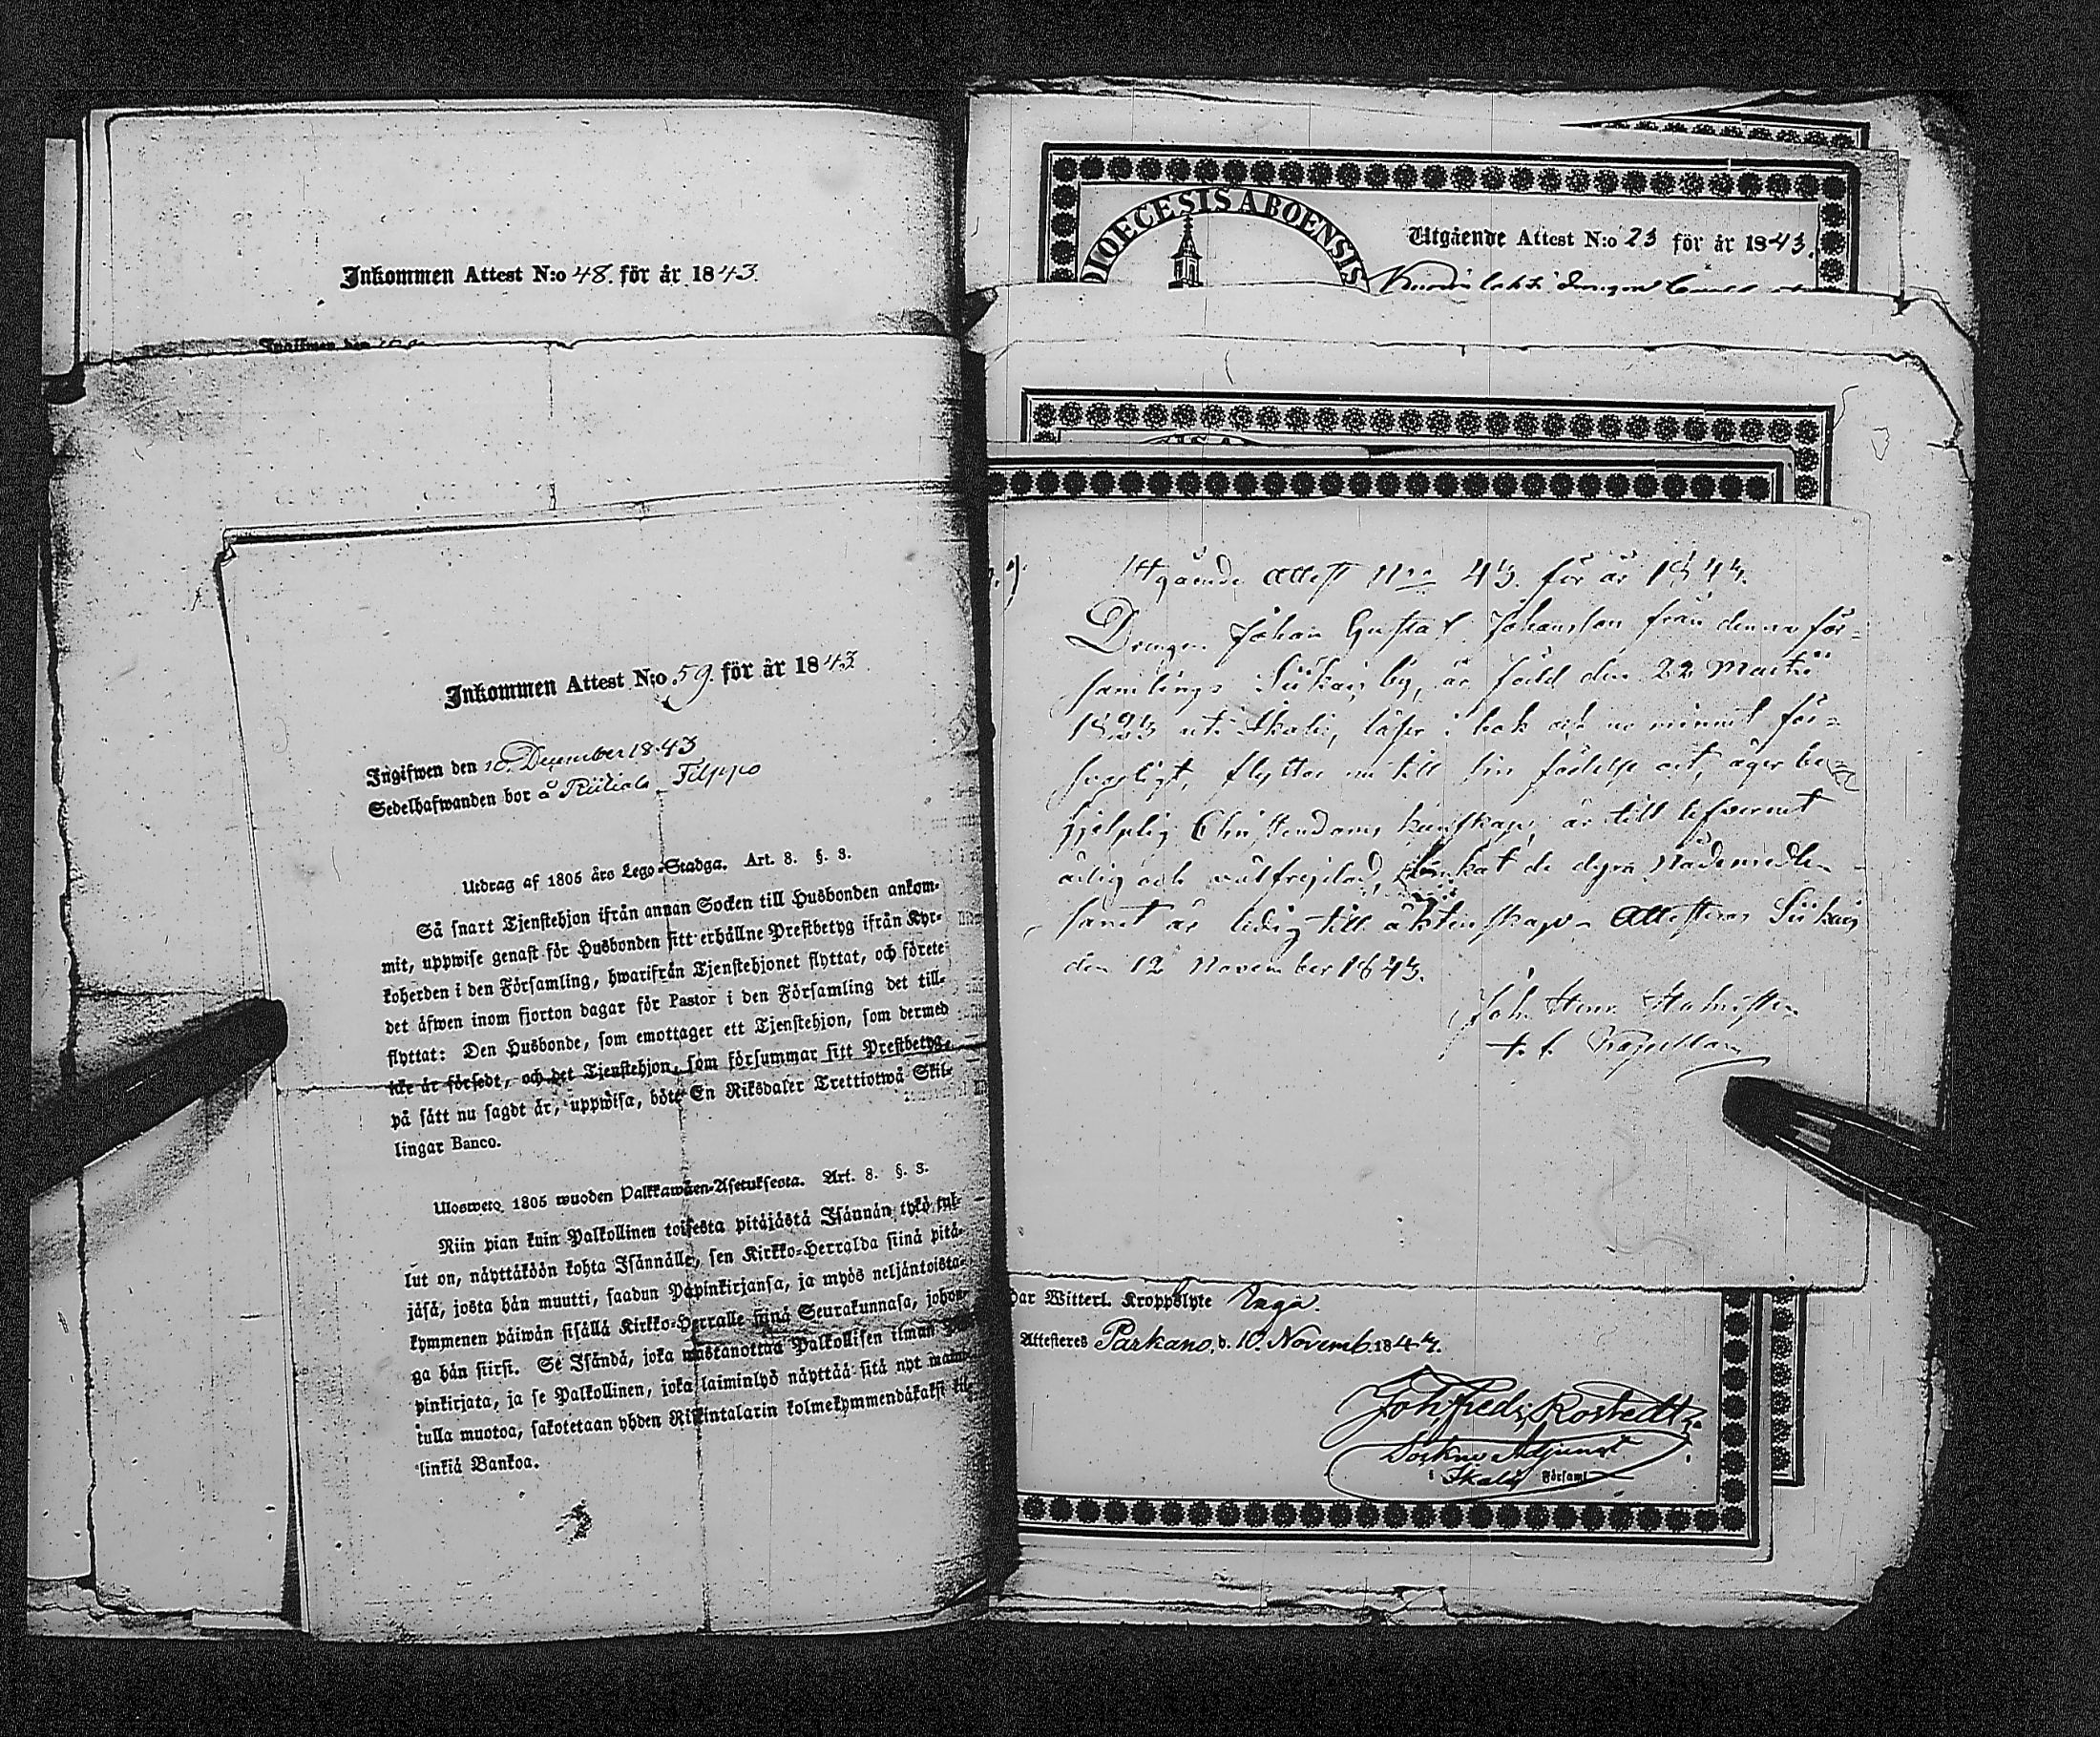 Inkommen Attest N:o 48. för år 1843.
Ingifwen den
Inkommen Attest N:o 59. för år 1843
Ingifwen den 10. December 1843
Sedelhafwanden bor å Riiliala Filppo
Utdrag af 1805 års Lego-Stadga. Art. 8. §. 3.
Så snart Tjenstehjon ifrån annan Socken till Husbonden ankom-
mit, uppwise genast för Husbonden sitt erhållne Prestbetyg ifrån Kyr-
koherden i den Församling, hwarifrån Tjenstehjonet flyttat, och förete
det äfwen inom fjorton dagar för Pastor i den Församling det till-
flyttat: Den Husbonde, som emottager ett Tjenstehjon, som dermed
icke är försedt, och det Tjenstehjon, som försummar sitt Prestbetyg,
på sätt nu sagdt är, uppwisa, böte En Riksdaler Trettiotwå Skil-
lingar Banco.
Ulosweto 1805 wuoden Palkkawäen-Asetuksesta. Art. 8. §. 3.
Niin pian kuin Palkollinen toisesta pitäjästä Isännän tykö tul-
lut on, näyttäköön kohta Isännälle, sen Kirkko-Herralda siinä pitä-
jäsä, josta hän muutti, saadun Papinkirjansa, ja myös neljäntoista-
kymmenen päiwän sisällä Kirkko-Herralle siinä Seurakunnasa, johon-
ga hän siirsi. Se Isändä, joka wastanottaa Palkollisen ilman
pinkirjata, ja se Palkollinen, joka laiminlyö näyttää sitä nyt maini-
tulla muotoa, sakotetaan yhden Riikintalarin kolmekymmendäkaksi kil-
linkiä Bankoa.
DIOECESIS ABOENSIS
Utgående Attest N:o 23 för år 1843.
Utgående Attest N:o 43. för år 1843.
Drengen Johan Gustaf Johansson från denna för-
samlings Siikais by, är född den 22 Martii
1823 uti Ikalis, läser i bok och ur minnet för-
svarligt, flyttar nu till sin födelse ort, äger be-
hjelplig Christendoms kunskap, är till lefvernet
ärlig och välfrejdad, har bruk at de dyra Nådemedlen
samt är ledig till äktenskap. Attesteras Siikais
den 12 November 1843.
Joh. Henr.
t. f. Kapellan
har Witterl. Kroppslyte Inga.
Attesteres Parkano, d. 10. Novemb. 1843.
Joh. Fredr. Rostedt
Sockne Adjunct
i Ikalis Församl.